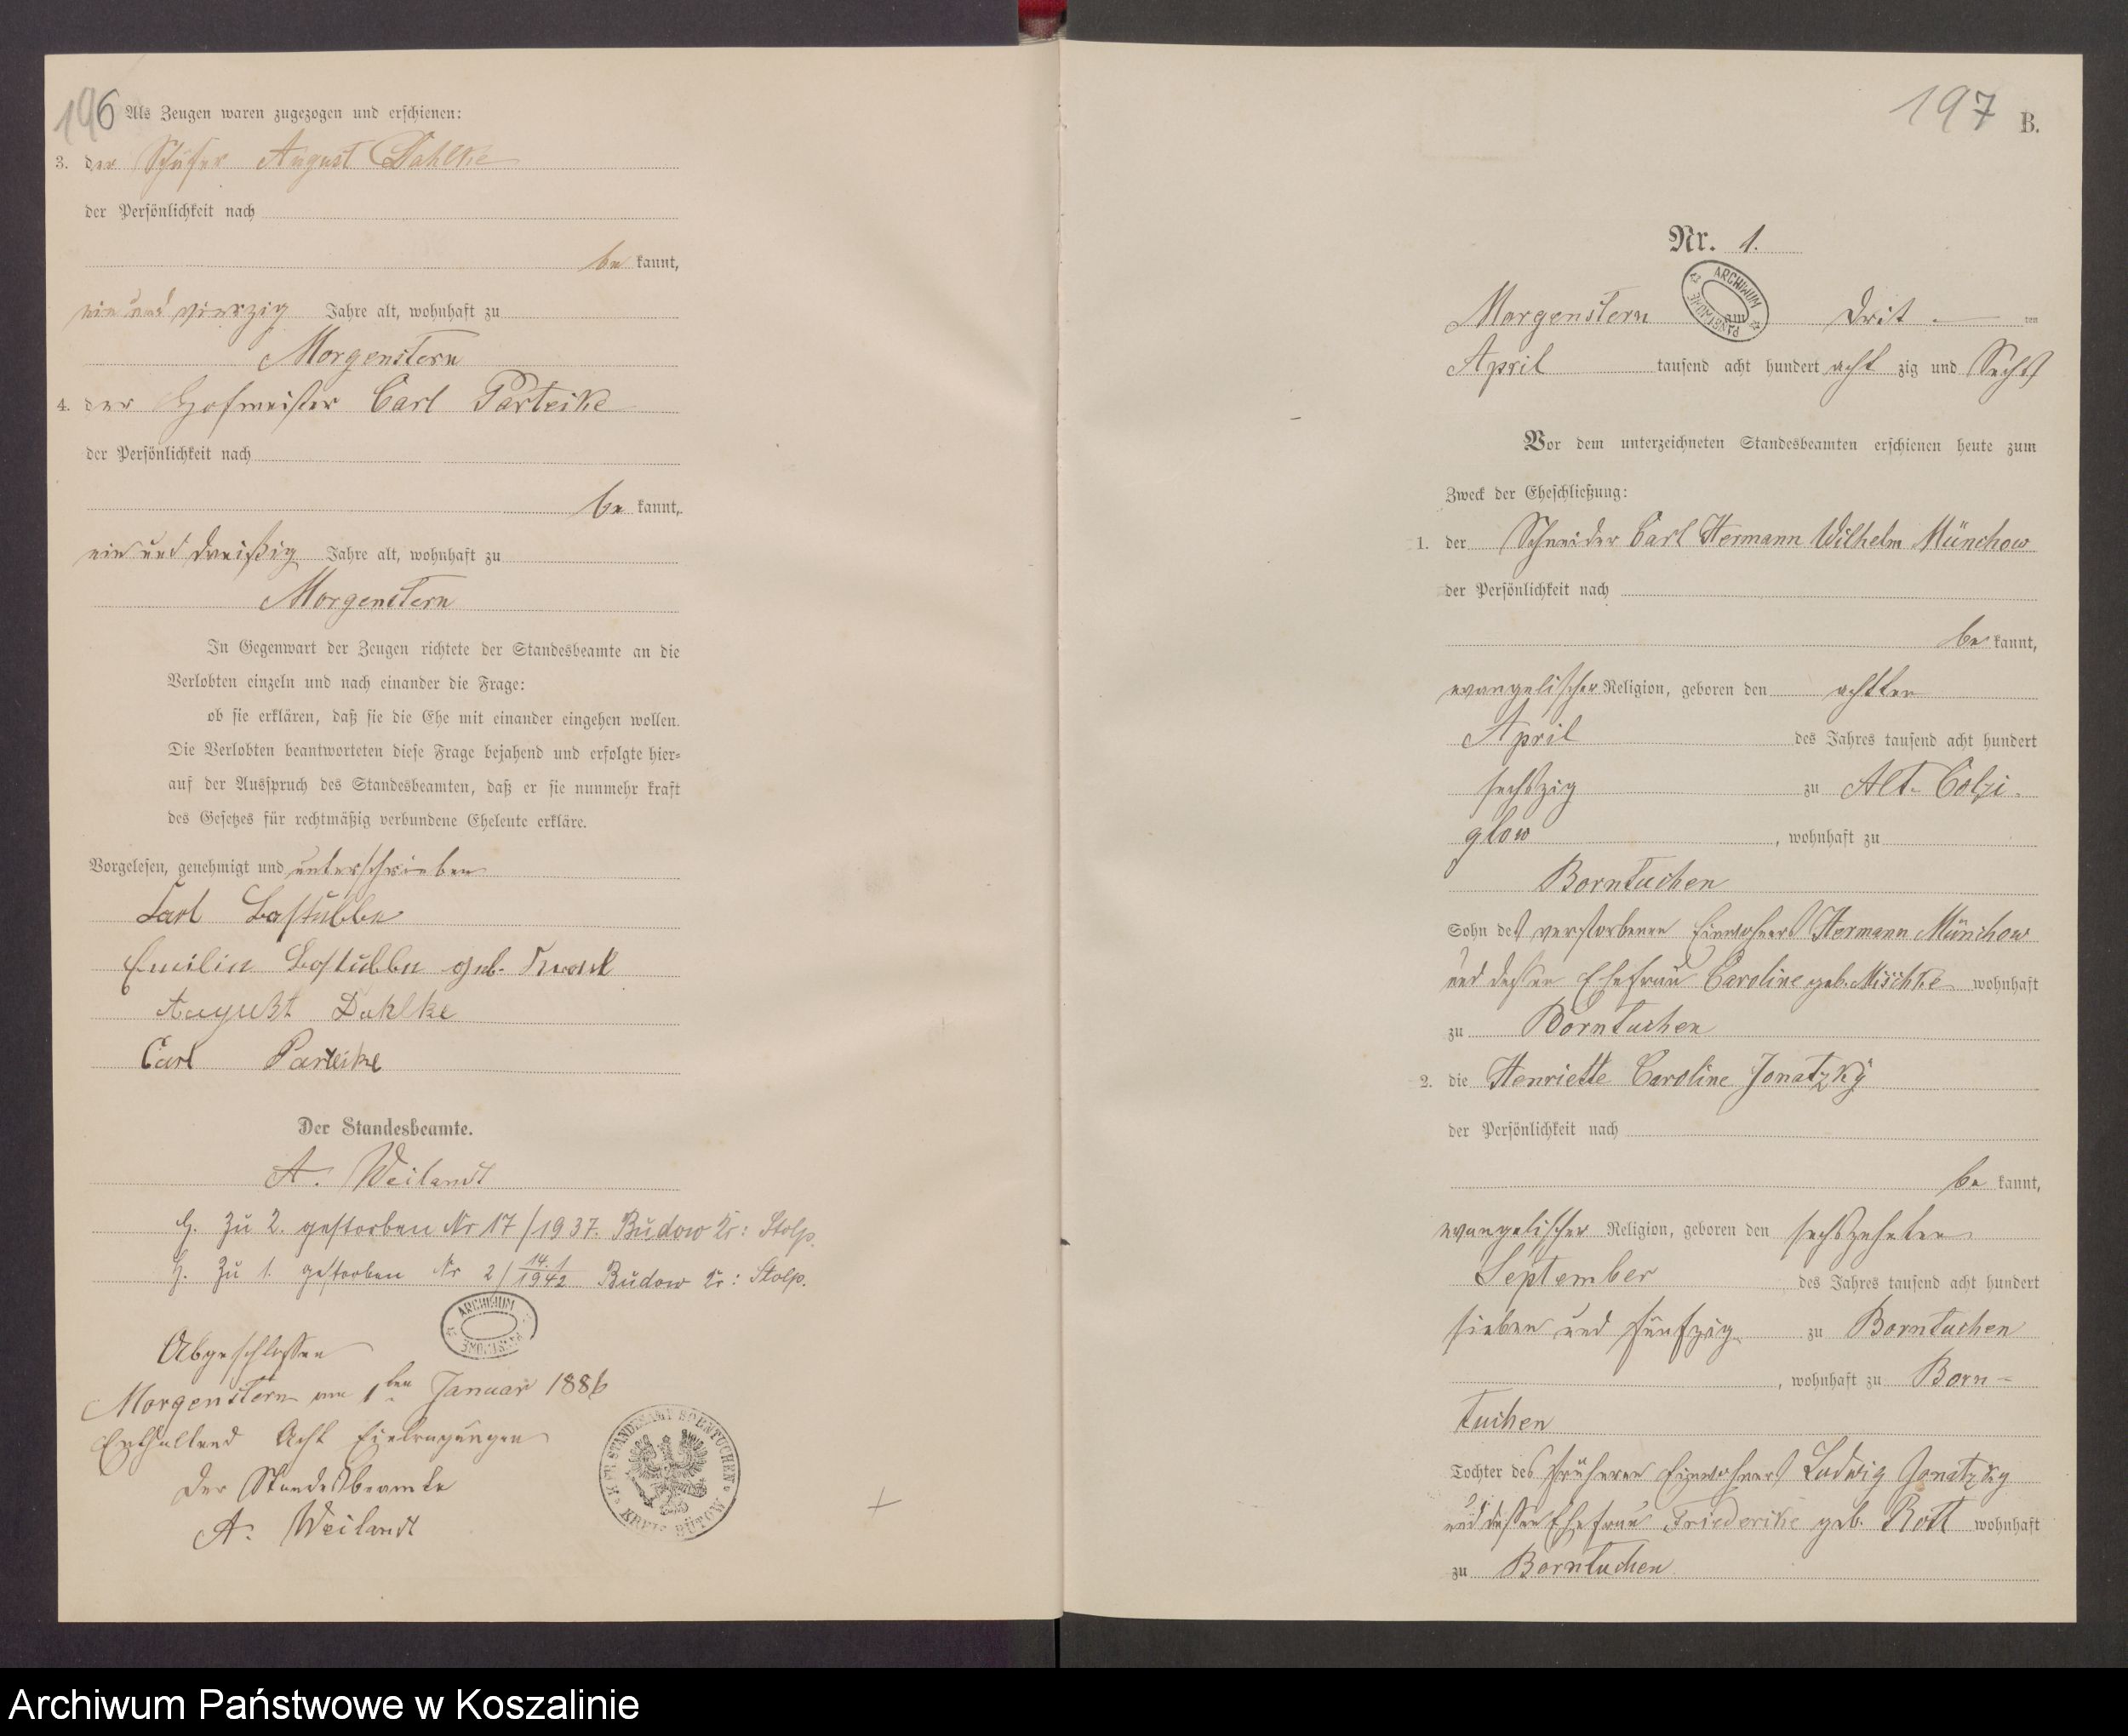 196
Als Zeugen waren zugezogen und erschienen:
3. der Schäfer August Dahlke
der Persönlichkeit nach
be kannt,
ein und vierzig Jahre alt, wohnhaft zu
Morgenstern
4. der Hofmeister Carl Parteike
der Persönlichkeit nach
be kannt,
ein und dreißig Jahre alt, wohnhaft zu
Morgenstern
In Gegenwart der Zeugen richtete der Standesbeamte an die
Verlobten einzeln und nach einander die Frage:
ob sie erklären, daß sie die Ehe mit einander eingehen wollen.
Die Verlobten beantworteten diese Frage bejahend und erfolgte hier-
auf der Ausspruch des Standesbeamten, daß er sie nunmehr kraft
des Gesetzes für rechtmäßig verbundene Eheleute erkläre.
Vorgelesen, genehmigt und unterschrieben
Carl
Emilie geb.
August Dahlke
Carl Parteike
Der Standesbeamte.
A. Weilandt
H. Zu 2. gestorben Nr 17/1937. Budow Kr: Stolp.
H. Zu 1. gestorben Nr 2/14.1 1942 Budow Kr: Stolp.
ARCHIWUM PAŃSTWOWE
Abgeschlossen
Morgenstern am 1ten Januar 1886
Enthaltend Acht Eintragungen
Der Standesbeamte
A. Weilandt
STANDESAMT BORNTUCHEN
KREIS BÜTOW
197
B.
Nr. 1.
ARCHIWUM PAŃSTWOWE
Morgenstern am Drit ten
April tausend acht hundert acht zig und Sechs
Vor dem unterzeichneten Standesbeamten erschienen heute zum
Zweck der Eheschließung:
1. der Schneider Carl Hermann Wilhelm Münchow
der Persönlichkeit nach
be kannt,
evangelischer Religion, geboren den achtten
April des Jahres tausend acht hundert
sechszig zu Alt-Colzi-
glow, wohnhaft zu
Borntuchen
Sohn des verstorbenen Einwohners Hermann Münchow
und dessen Ehefrau Caroline geb. Mischke wohnhaft
zu Borntuchen
2. die Henriette Caroline Jonatzky
der Persönlichkeit nach
be kannt,
evangelischer Religion, geboren den sechszehnten
September des Jahres tausend acht hundert
sieben und fünfzig zu Borntuchen
, wohnhaft zu Born-
tuchen
Tochter des früheren Einwohners Ludwig Jonatzky
und dessen Ehefrau Friederike geb. Rott wohnhaft
zu Borntuchen
Archiwum Państwowe w Koszalinie